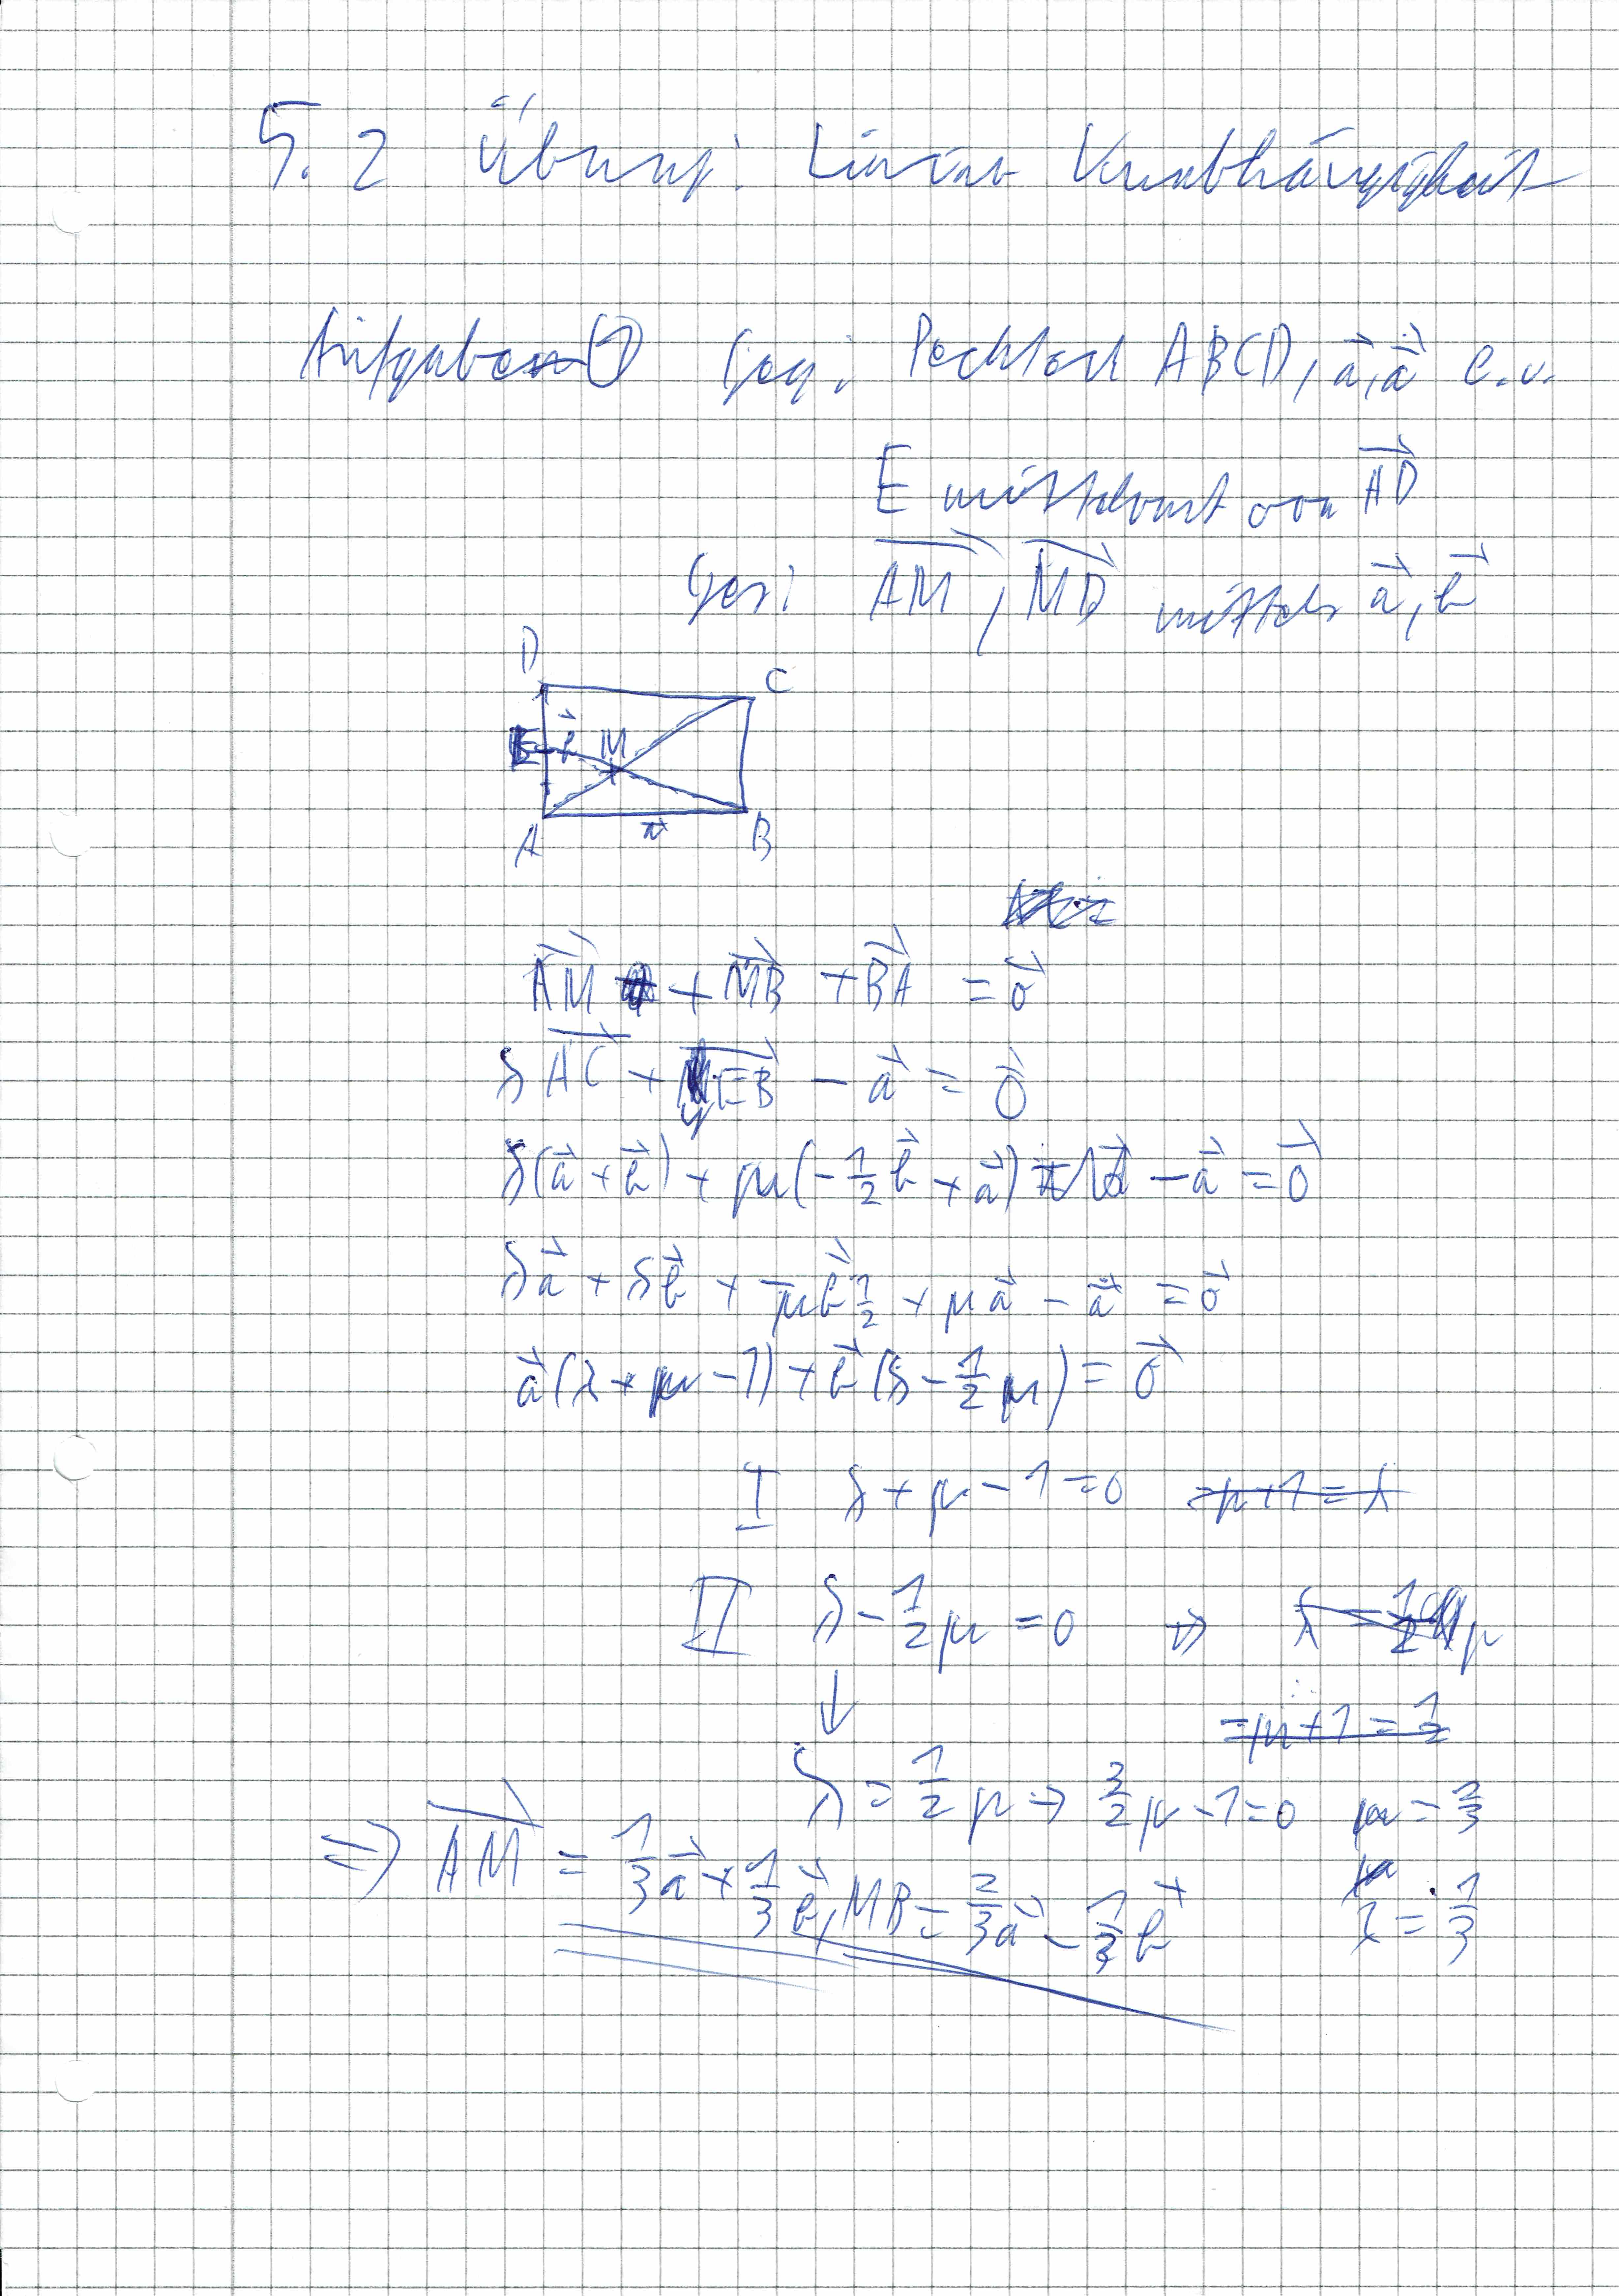 5.2 Übung: Lineare Unabhängigkeit
Aufgabe 1 Geg: Rechteck ABCD, a⃗, a⃗ l.u.
E mittelpunkt von AD⃗
Ges: AM⃗, MB⃗ mittels a⃗, b⃗
D C
E b⃗ M
A a⃗ B
AM⃗ + MB⃗ + BA⃗ = 0⃗
λ AC⃗ + μ EB⃗ - a⃗ = 0⃗
λ(a⃗ + b⃗) + μ(-1/2 b⃗ + a⃗) - a⃗ = 0⃗
λa⃗ + λb⃗ + -μb⃗ 1/2 + μa⃗ - a⃗ = 0⃗
a⃗(λ + μ - 1) + b⃗(λ - 1/2 μ) = 0⃗
I λ + μ - 1 = 0 -μ + 1 = λ
II λ - 1/2 μ = 0 ⇒ λ = 1/2 μ
↓ -μ + 1 = 1/2
λ = 1/2 μ ⇒ 3/2 μ - 1 = 0 μ = 2/3
⇒ AM⃗ = 1/3 a⃗ + 1/3 b⃗, MB = 2/3 a⃗ - 1/3 b⃗ λ = 1/3